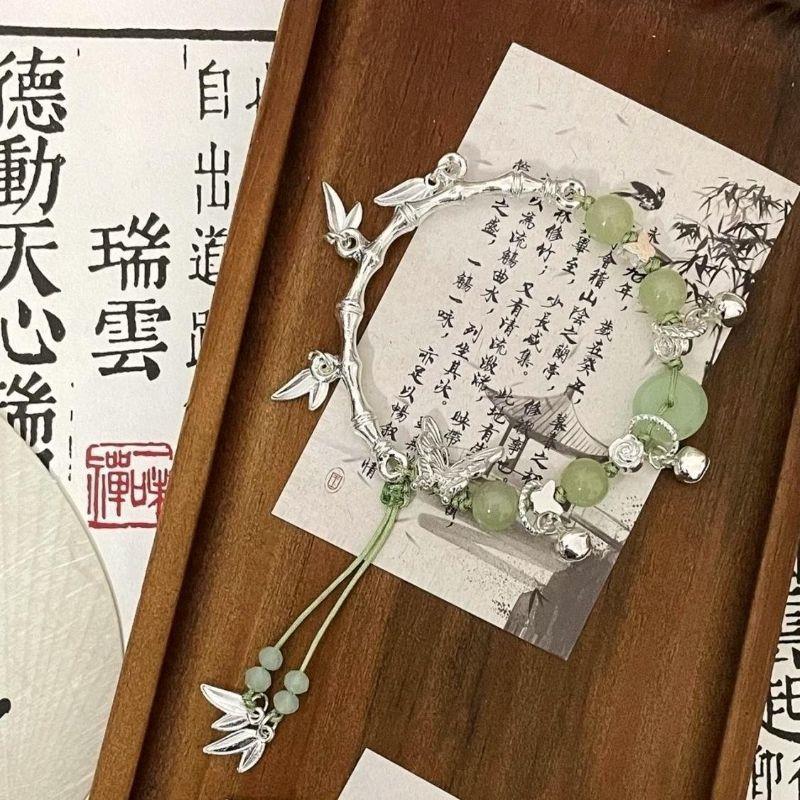 自出道
瑞雲
德動天心瑞
一味禪
永九年，歲在癸丑，暮春之初
會稽山陰之蘭亭，修禊事也
畢至，少長咸集。此地有
修竹，又有清流激湍，映帶
以為流觴曲水，列坐其次。
之盛，一觴一咏，亦足以暢敘
情
起